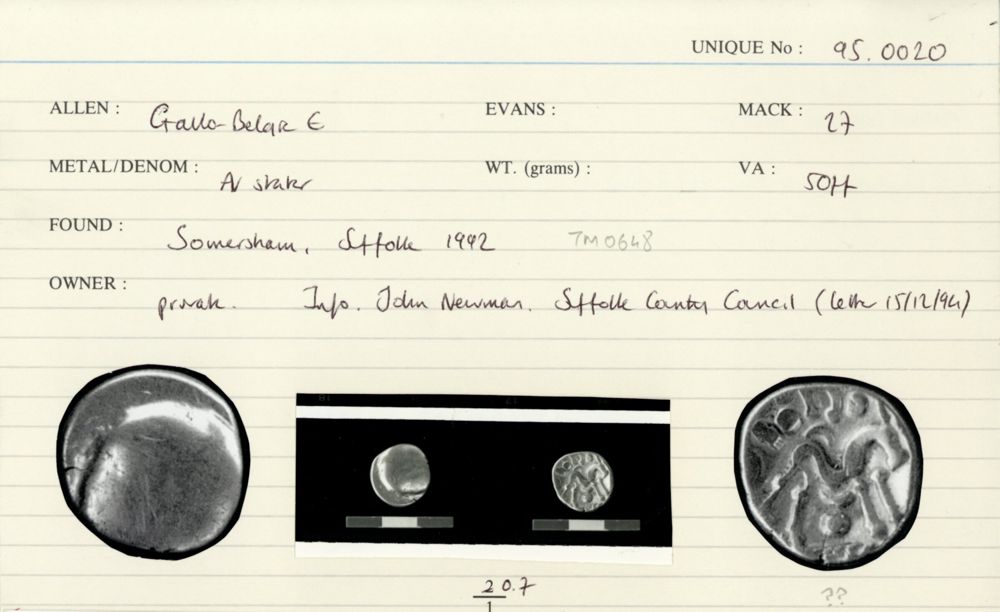 UNIQUE No : 95.0020
ALLEN : Gallo-Belgic E EVANS : MACK : 27
METAL/DENOM : AV stater WT. (grams) : VA : 50ff
FOUND : Somersham, Suffolk 1992 TM0648
OWNER : private. Info. John Newman. Suffolk County Council (letter 15/12/94)
20.7
1
??